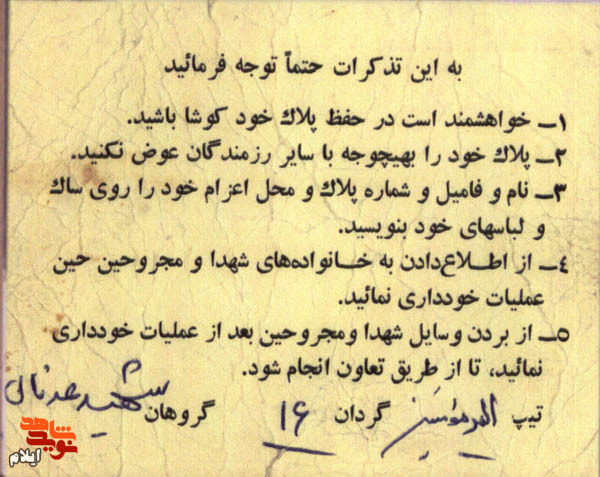 به این تذکرات حتماً توجه فرمائید
۱ـ خواهشمند است در حفظ پلاك خود كوشا باشید.
۲ـ پلاك خود را بهیچوجه با سایر رزمندگان عوض نكنید.
۳ـ نام و فامیل و شماره پلاك و محل اعزام خود را روی ساك
و لباسهای خود بنویسید.
٤ـ از اطلاع‌دادن به خانواده‌های شهدا و مجروحین حین
عملیات خودداری نمائید.
۵ـ از بردن وسایل شهدا ومجروحین بعد از عملیات خودداری
نمائید، تا از طریق تعاون انجام شود.
تیپ امیرمؤمنین گردان ۱۶ گروهان شهید
نوید شاهد
ایلام